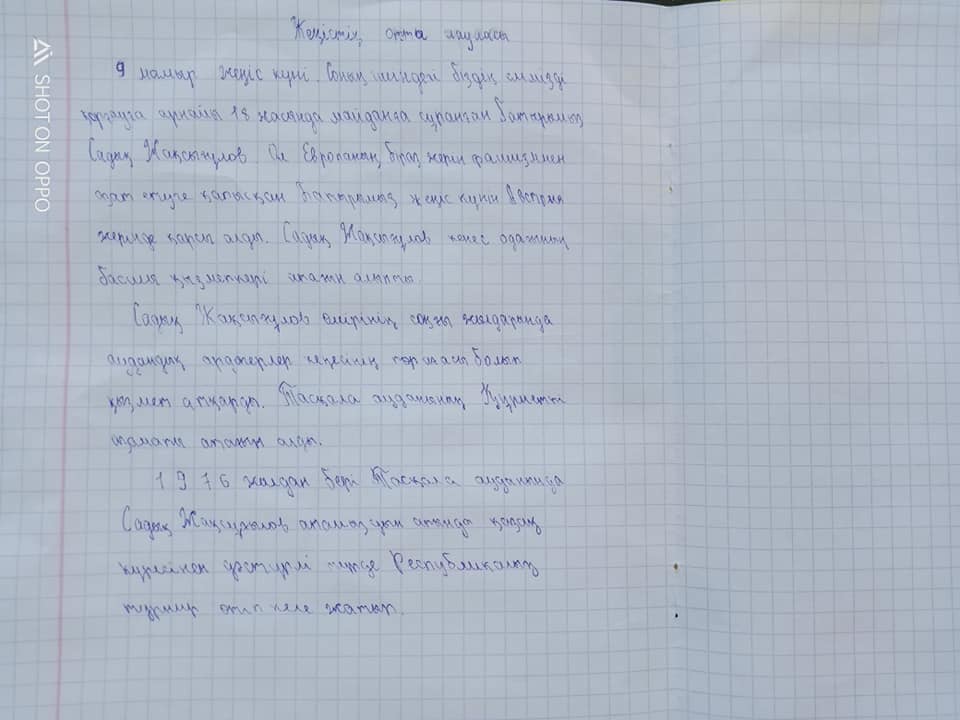 SHOT ON OPPO
Жеңістің отта лауласы
9 мамыр жеңіс күні. Соның ішіндегі біздің елімізді
қорғауға арнайы 18 жасында майданға сұранған батырымыз
Садық Жақсығұлов. Ол Европаның біраз жерін фашизмнен
азат етуге қатысқан. Батырымыз жеңіс күнін Австрия
жерінде қарсы алды. Садық Жақсығұлов кеңес одағының
қызметкері атағын алыпты.
Садық Жақсығұлов өмірінің соңғы жылдарында
аудандық ардагерлер кеңесінің төрағасы болып
қызмет атқарды. Тасқала ауданының Құрметті
азаматы атағын алды.
1976 жылдан бері Тасқала ауданында
Садық Жақсығұлов атамыздың атында қазақ
күресінен дәстүрлі түрде Республикалық
турнир өтіп келе жатыр.